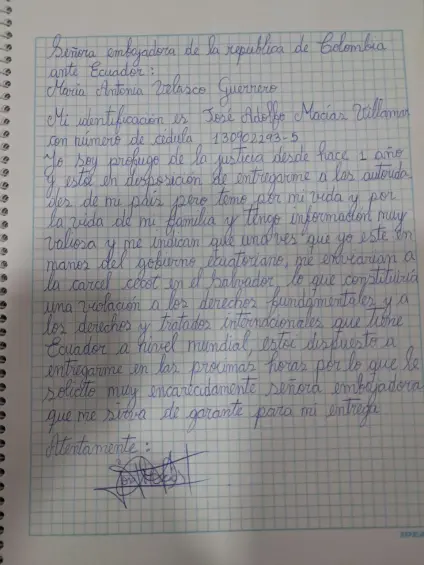 Señora embajadora de la republica de Colombia
ante Ecuador:
María Antonia Velasco Guerrero
Mi identificación es José Adolfo Macías Villamar
con número de cédula 130902293-5
Yo soy profugo de la justicia desde hace 1 año
y estoi en disposición de entregarme a las autorida
des de mi país pero temo por mi vida y por
la vida de mi familia y tengo información muy
valiosa y me indican que una ves que yo este en
manos del gobierno ecuatoriano, me enviarian a
la carcel cecot en el Salvador, lo que constituiria
una violación a los derechos fundamentales y a
los derechos y tratados internacionales que tiene
Ecuador a nivel mundial, estoc dispuesto a
entregarme en las proximas horas por lo que le
solicito muy encarecidamente señora embajadora
que me sirva de garante para mi entrega
Atentamente: